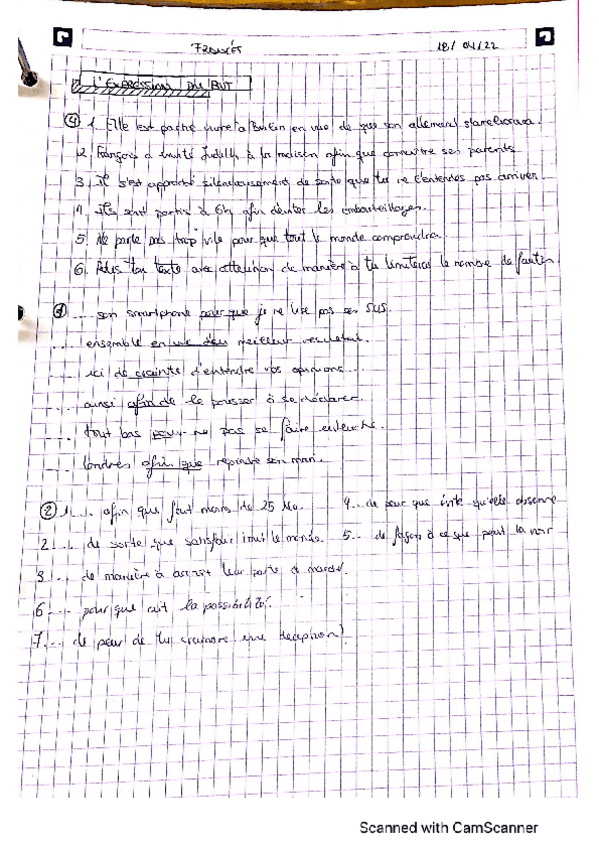 Francés 18/04/22
L'EXPRESSION DU BUT
④ 1. Elle est vivre à Berlin en vue de que son allemand s'améliorera.
2. François a invité Judith à la maison afin que connaître ses parents.
3. Il s'est approché silencieusement de sorte que tu ne l'entendes pas arriver.
4. Ils sont partis à 6h afin d'éviter les embouteillages.
5. Ne parle pas trop vite pour que tout le monde comprendra.
6. ton texte avec attention de manière à tu limiteras le nombre de
... son smartphone pour que je ne lise pas ses SMS.
ensemble en vue d'un meilleur résultat.
... ici de crainte d'entendre vos opinions...
... ainsi afin de le pousser à se déclarer.
... tout bas pour ne pas se faire
... Londres afin que son mari.
② 1.... afin que moins de 25 4... de peur que qu'elle
2... de sorte que tout le monde. 5... de façon à ce que la voir
3... de manière à leur porte à
6.... pour que la possibilité.
7... de peur de tu une déception!
Scanned with CamScanner